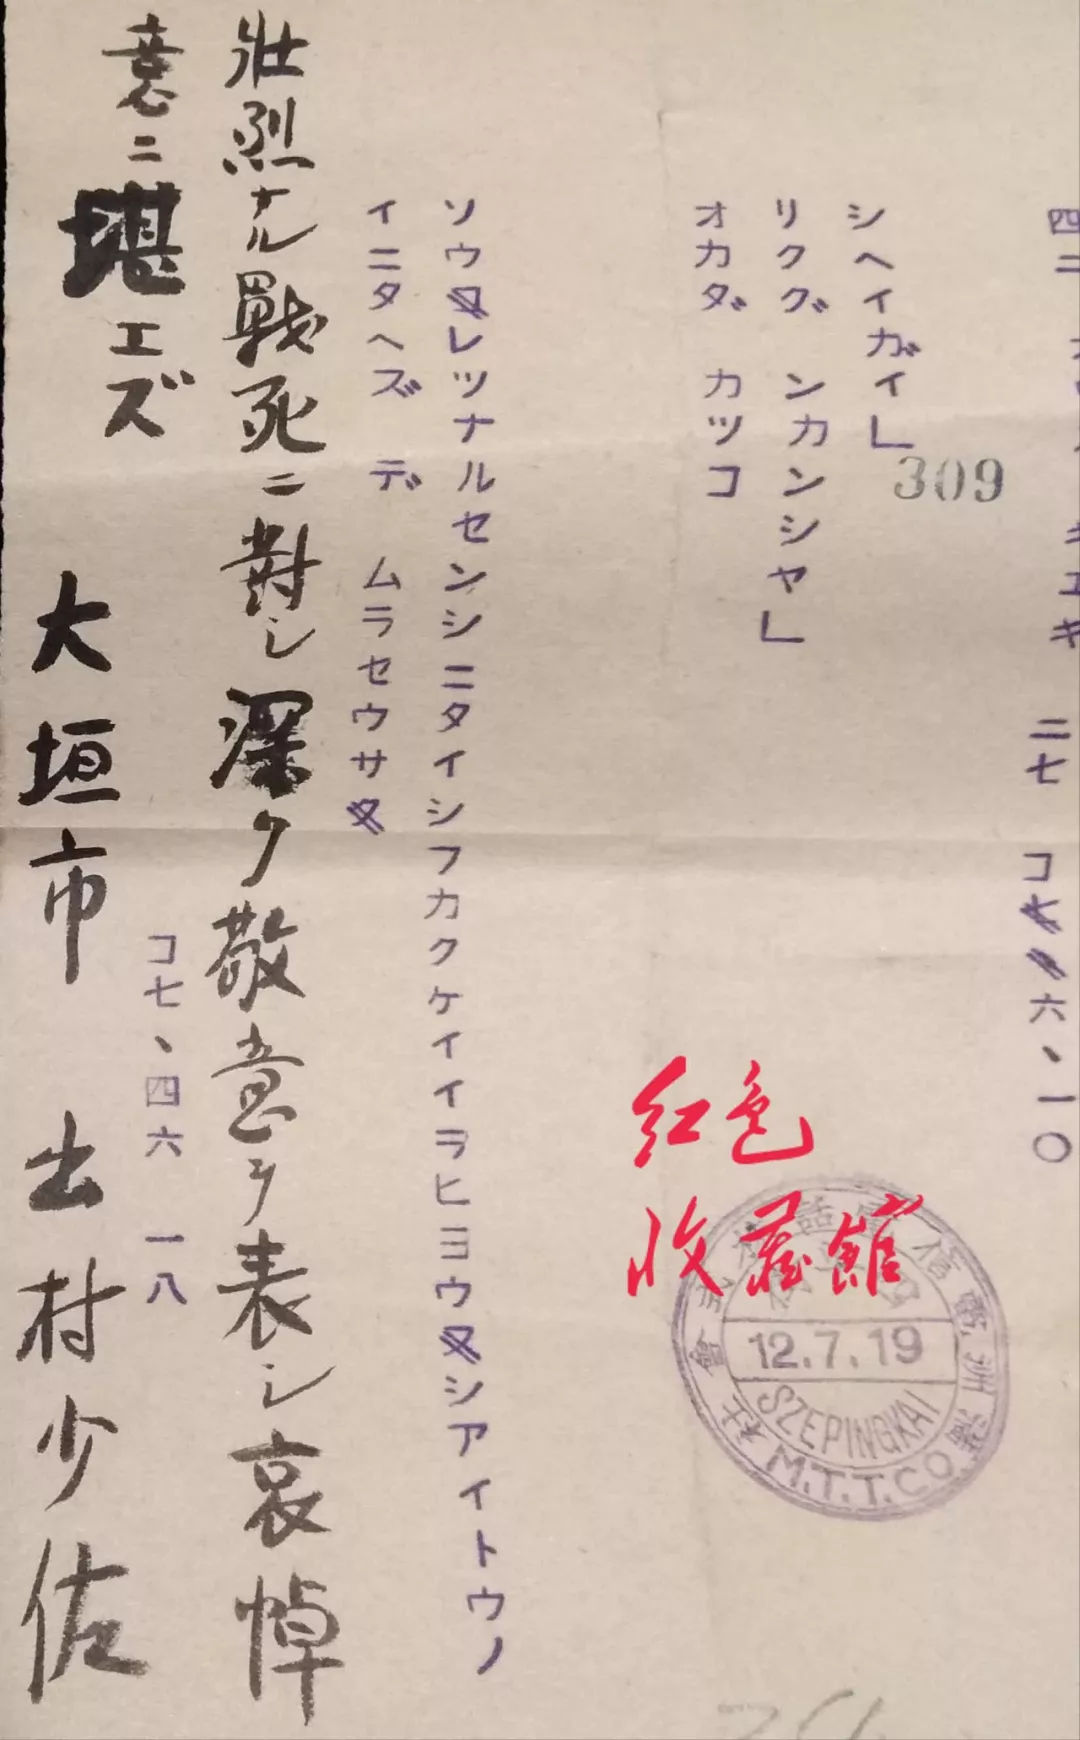 二七 コ 六、一〇
シヘイガイ」
309
リクグンカンシヤ」
オカダ カツコ
ソウレツナルセンシニタイシフカクケイイラヒヨウシアイトウノ
イニタヘズ デムラセウサ
壯烈ナル戰死ニ對シ深ク敬意ヲ表シ哀悼
意ニ堪エズ
コ七、四六 一八
大垣市 出村少佐
红色
收藏館
滿洲電信電話株式會社
12.7.19
SZEPINGKAI
M.T.T.CO.